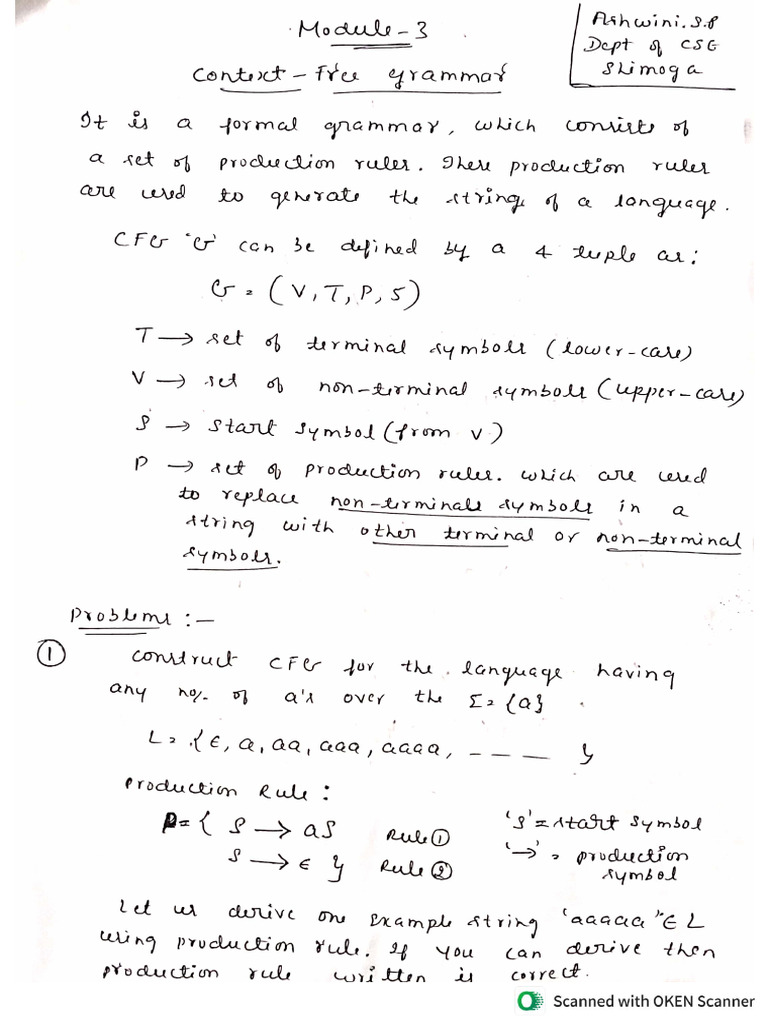 Module-3
Ashwini.S.P
Dept of CSE
Shimoga
Context-Free grammar
It is a formal grammar, which consists of
a set of production rules. These production rules
are used to generate the strings of a language.
CFG 'G' can be defined by a 4 tuple as:
G = (V, T, P, S)
T → set of terminal symbols (lower-case)
V → set of non-terminal symbols (upper-case)
S → start symbol (from V)
P → set of production rules. which are used
to replace non-terminals symbols in a
string with other terminal or non-terminal
symbols.
Problems :-
① Construct CFG for the language having
any no. of a's over the Σ = {a}
L = {ε, a, aa, aaa, aaaa, ---- }
Production Rule:
P = { S → aS Rule ① 'S' = start symbol
S → ε } Rule ② '→' = production
symbol
Let us derive one example string 'aaaaa' ∈ L
using production rule. If you can derive then
production rule written is correct.
Scanned with OKEN Scanner